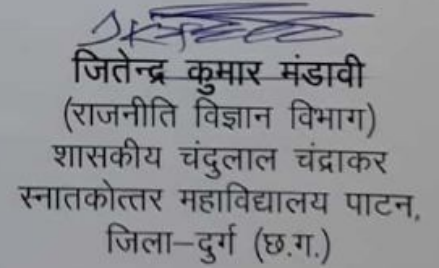 जितेन्द्र कुमार मंडावी
(राजनीति विज्ञान विभाग)
शासकीय चंदुलाल चंद्राकर
स्नातकोत्तर महाविद्यालय पाटन,
जिला–दुर्ग (छ.ग.)